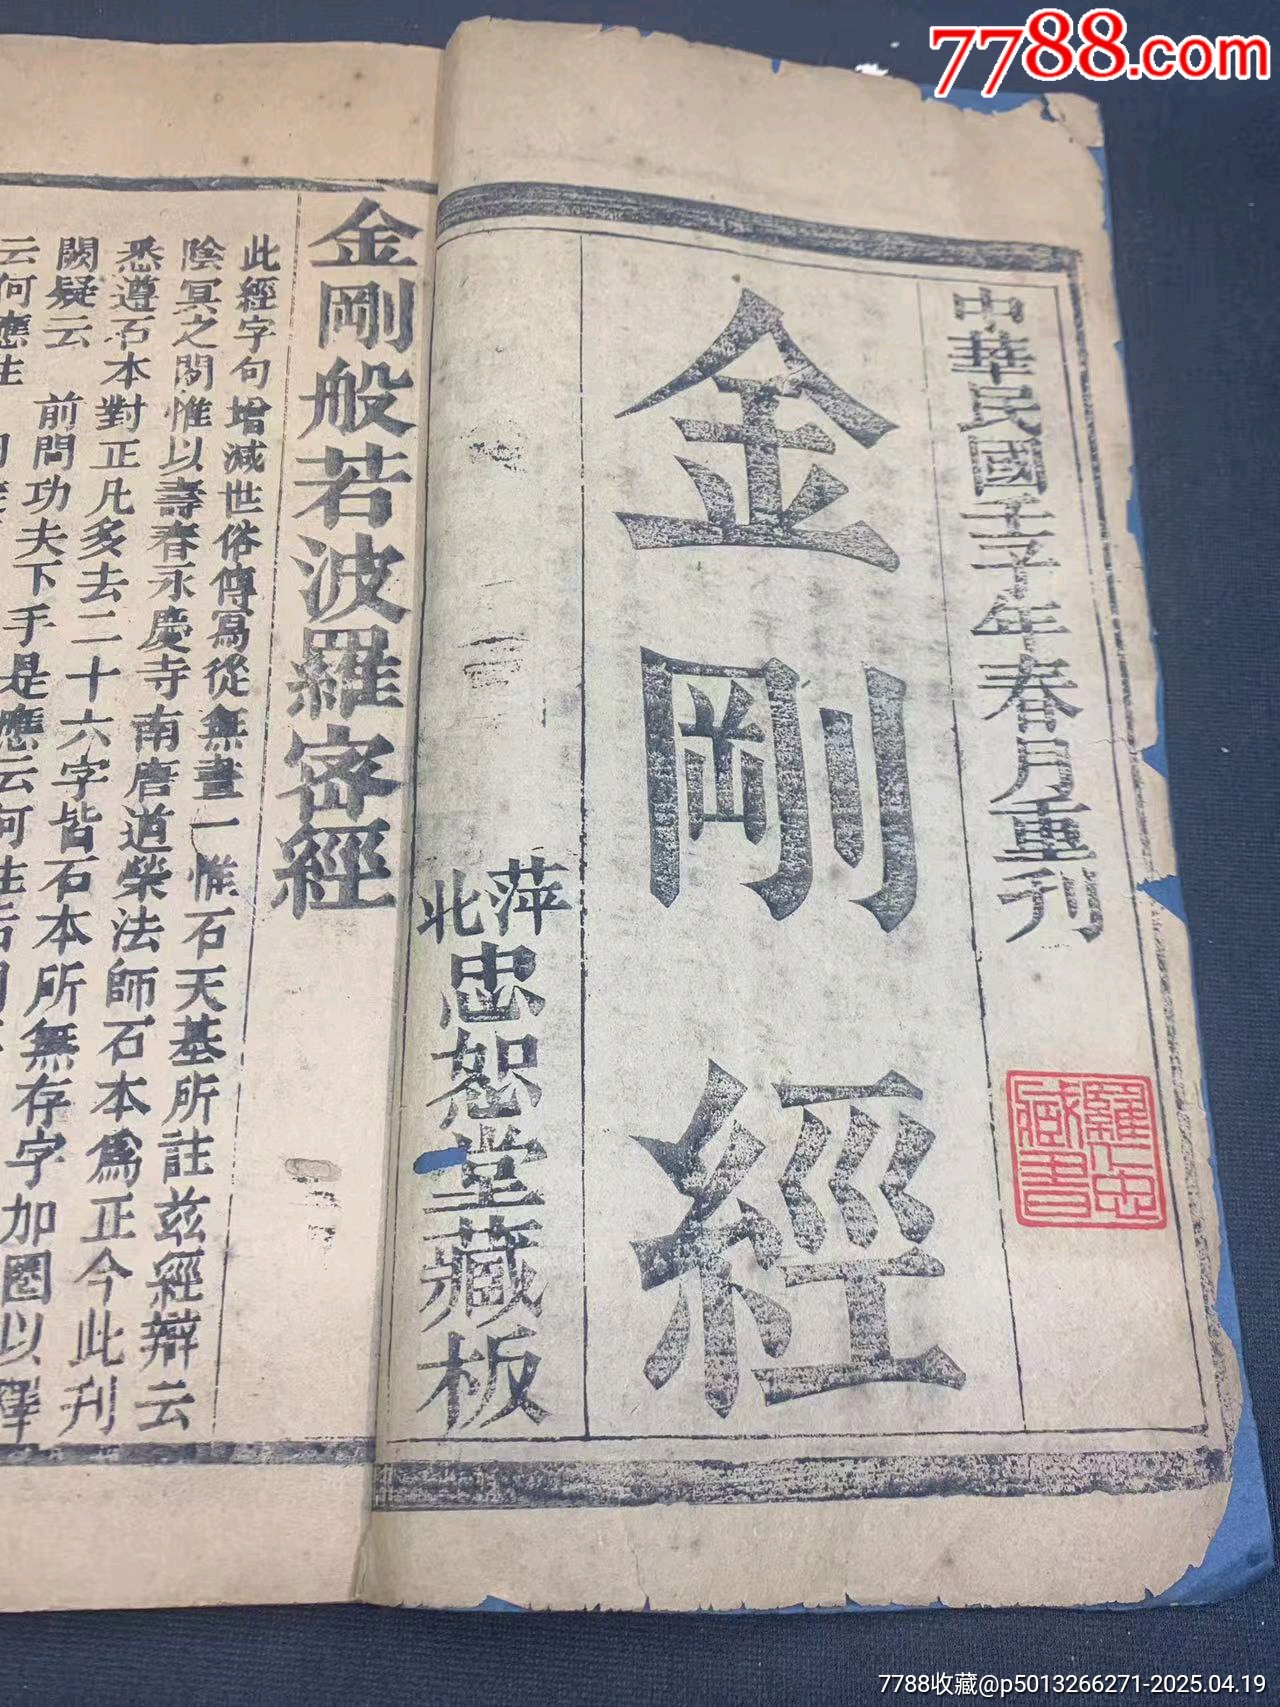 7788.com
中華民國壬子年春月重刊
金剛經
萍北忠恕堂藏板
金剛般若波羅密經
此經字句增減世俗傳寫從無畫一惟石天基所註茲經辯云
陰冥之間惟以壽春永慶寺南唐道榮法師石本爲正今此刊
悉遵石本對正凡多去二十六字皆石本所無存字加圈以釋
闕疑云
前問功夫下手是應云何住
云何應住
7788收藏@p5013266271-2025.04.19